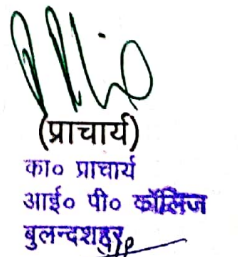 (प्राचार्य)
का० प्राचार्य
आई० पी० कॉलिज
बुलन्दशहर